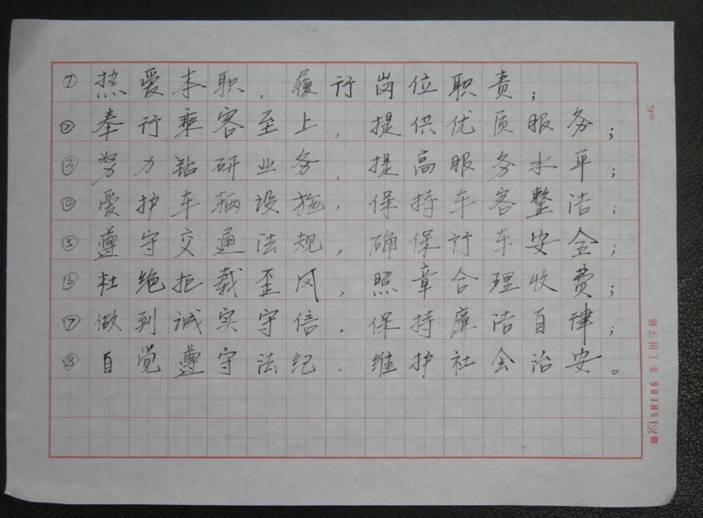 ① 热爱本职，履行岗位职责；
② 奉行乘客至上，提供优质服务；
③ 努力钻研业务，提高服务水平；
④ 爱护车辆设施，保持车容整洁；
⑤ 遵守交通法规，确保行车安全；
⑥ 杜绝拒载歪风，照章合理收费；
⑦ 做到诚实守信，保持廉洁自律；
⑧ 自觉遵守法纪，维护社会治安。
SHENG